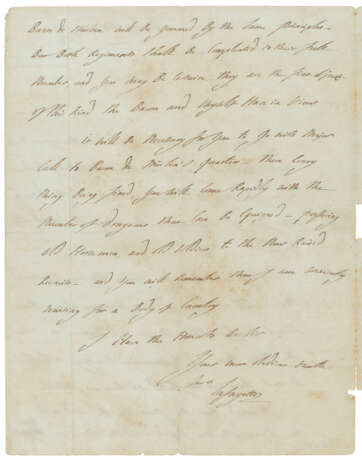 Baron de Steuben will be governed By the Same principles-
Our Both Regiments Shall be Compleated to their full
Number, and you may Be Certain they are the first object
of this kind the Baron and Myself Have in View
it will Be Necessary for you to go with Major
Call to Baron de Steuben's quarters - there Every
thing Being fixed you will Come Rapidly with the
Number of Dragoons that Can Be Equiped -
old Horsemen and to the New Raised
Recruits - and you will Remember that I am
waiting for a Body of Cavalry
I Have the Honor to be
Your most obedient Servant
Lafayette